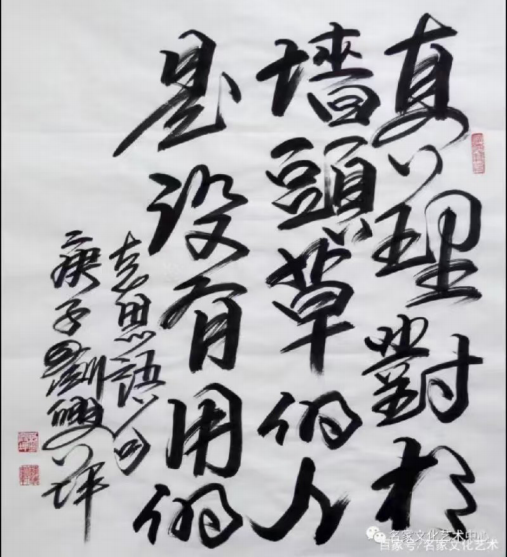 真理對於
墙頭草的人
是没有用的
思語句
庚子劉雙坪
名家文化艺术中心
百家号/名家文化艺术